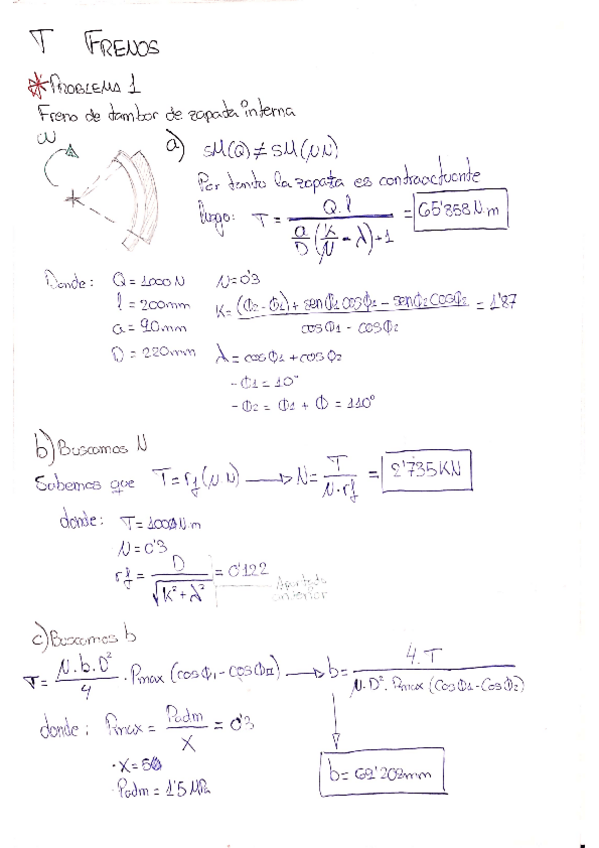 T FRENOS
* PROBLEMA 1
Freno de tambor de zapata interna
ω
a) SM(Q) ≠ SM(μN)
Por tanto la zapata es contraactuante
luego: T = Q.l / (a/D (K/μ - λ) + 1) = 65'858 N.m
Donde: Q = 1000 N μ = 0'3
l = 200mm K = ((Φ2 - Φ1) + senΦ1 cosΦ1 - senΦ2 cosΦ2) / (cosΦ1 - cosΦ2) = 1'87
a = 90mm
D = 220mm λ = cosΦ1 + cosΦ2
- Φ1 = 10°
- Φ2 = Φ1 + Φ = 110°
b) Buscamos N
Sabemos que T = rf (μ N) → N = T / (μ.rf) = 2'735 KN
donde: T = 100 N.m
μ = 0'3
rf = D / √(K² + λ²) = 0'122
Apartado anterior
c) Buscamos b
T = (μ.b.D² / 4) · Pmax (cosΦ1 - cosΦ2) → b = 4.T / (μ.D².Pmax (cosΦ1 - cosΦ2))
donde: Pmax = Padm / X = 0'3
· X = 5
· Padm = 1'5 MPa
b = 69'208mm